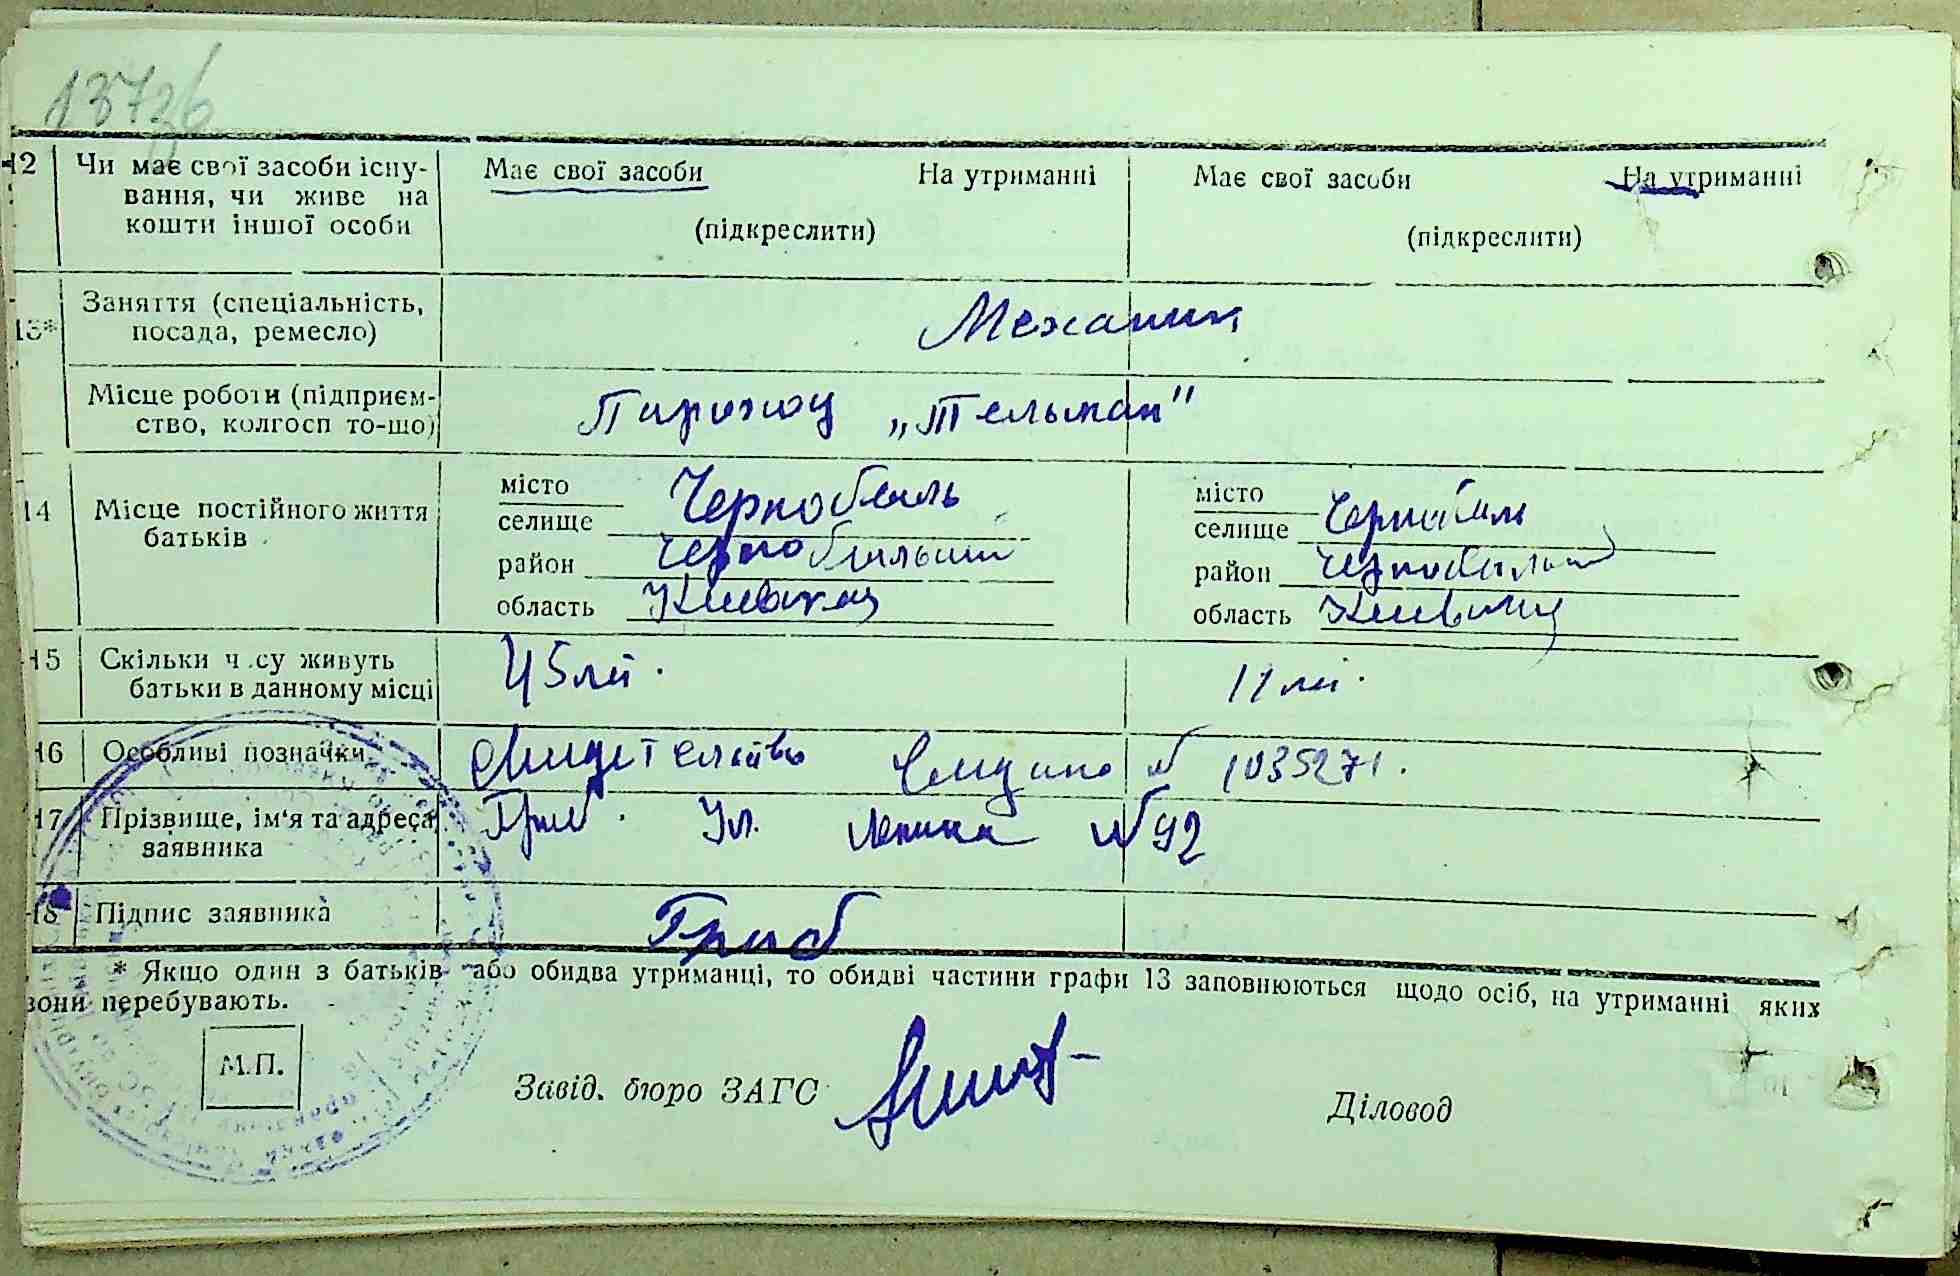 13726
12 Чи має свої засоби існу- Має свої засоби На утриманні Має свої засоби На утриманні
вання, чи живе на
кошти іншої особи (підкреслити) (підкреслити)
13* Заняття (спеціальність, Механик
посада, ремесло)
Місце роботи (підприєм- Пароход „Тельман"
ство, колгосп то-що)
14 Місце постійного життя
батьків
місто Чернобыль місто Чернобыль
селище селище
район Чернобыльский район Чернобыльский
область Киевская область Киевская
15 Скільки часу живуть 45 лет. 11 лет.
батьки в данному місці
16 Особливі позначки Свидетельство выдано № 1035271.
17 Прізвище, ім'я та адреса Гриб. Ул. Ленина №92
заявника
18 Підпис заявника Гриб
* Якщо один з батьків або обидва утриманці, то обидві частини графи 13 заповнюються щодо осіб, на утриманні яких
вони перебувають.
М.П.
Завід. бюро ЗАГС Діловод